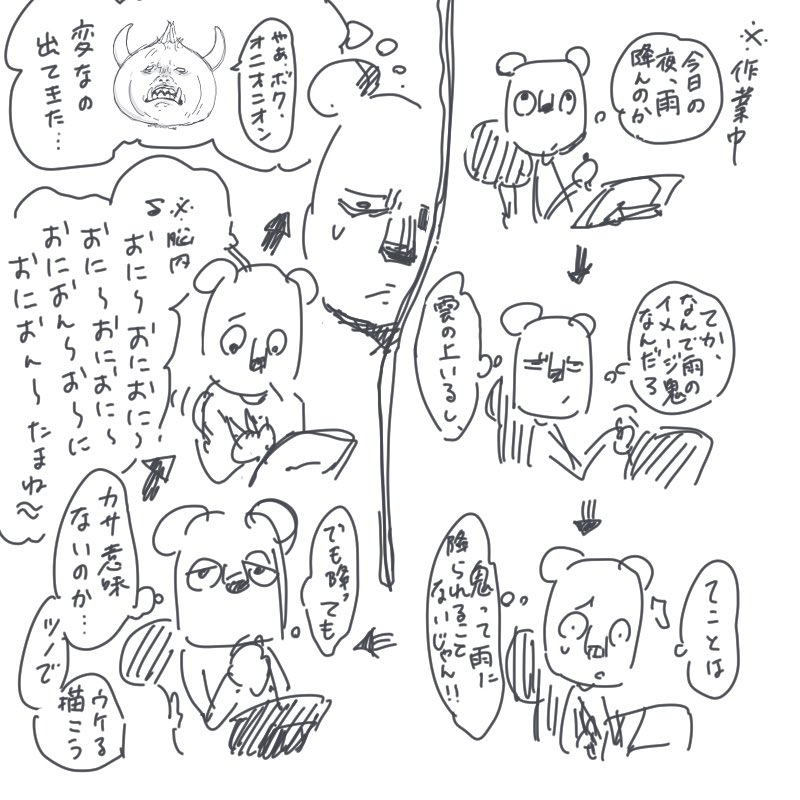 ※作業中
今日の
夜、雨
降んのか
てか、
なんで雨の
イメージ鬼
なんだろ
雲の上いるし、
てことは
鬼って雨に
降られること
ないじゃん!!
でも降っても
カサ意味
ないのか…
ツノで
ウケる
描こう
※脳内
おに〜おにおに〜♪
おに〜おにおに〜
おにおん〜お〜に
おにおん〜たまね〜
やあ、ボク・
オニオニオン
変なの
出てきた…